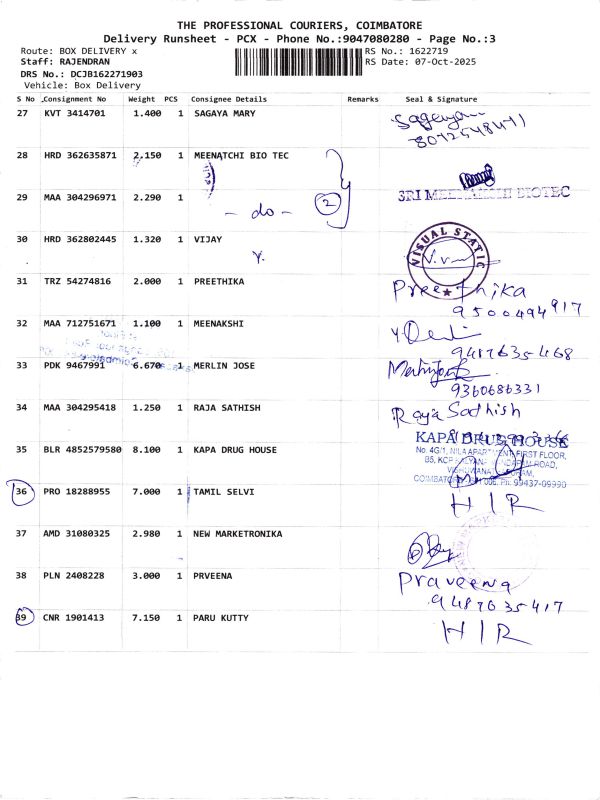 THE PROFESSIONAL COURIERS, COIMBATORE
Delivery Runsheet - PCX - Phone No.:9047080280 - Page No.:3
Route: BOX DELIVERY x
RS No.: 1622719
Staff: RAJENDRAN
RS Date: 07-Oct-2025
DRS No.: DCJB162271903
Vehicle: Box Delivery
S No Consignment No Weight PCS Consignee Details Remarks Seal & Signature
27 KVT 3414701 1.400 1 SAGAYA MARY
8072548471
28 HRD 362635871 2.150 1 MEENATCHI BIO TEC
29 MAA 304296971 2.290 1
- do - 2
SRI MEENAKSHI BIOTEC
30 HRD 362802445 1.320 1 VIJAY
VISUAL STATIC
31 TRZ 54274816 2.000 1 PREETHIKA
Preethika
9500494917
32 MAA 712751671 1.100 1 MEENAKSHI
9487635468
33 PDK 9467991 6.670 1 MERLIN JOSE
9360686331
34 MAA 304295418 1.250 1 RAJA SATHISH
Raja Sathish
35 BLR 4852579580 8.100 1 KAPA DRUG HOUSE
KAPA DRUG HOUSE
No. 4G/1, NILA APARTMENT, FIRST FLOOR,
85, KCP KALYANA MANDAPAM ROAD,
COIMBATORE Ph: 99437-09990
36 PRO 18288955 7.000 1 TAMIL SELVI
H I R
37 AMD 31080325 2.980 1 NEW MARKETRONIKA
38 PLN 2408228 3.000 1 PRVEENA
Praveena
9487635417
39 CNR 1901413 7.150 1 PARU KUTTY
H I R